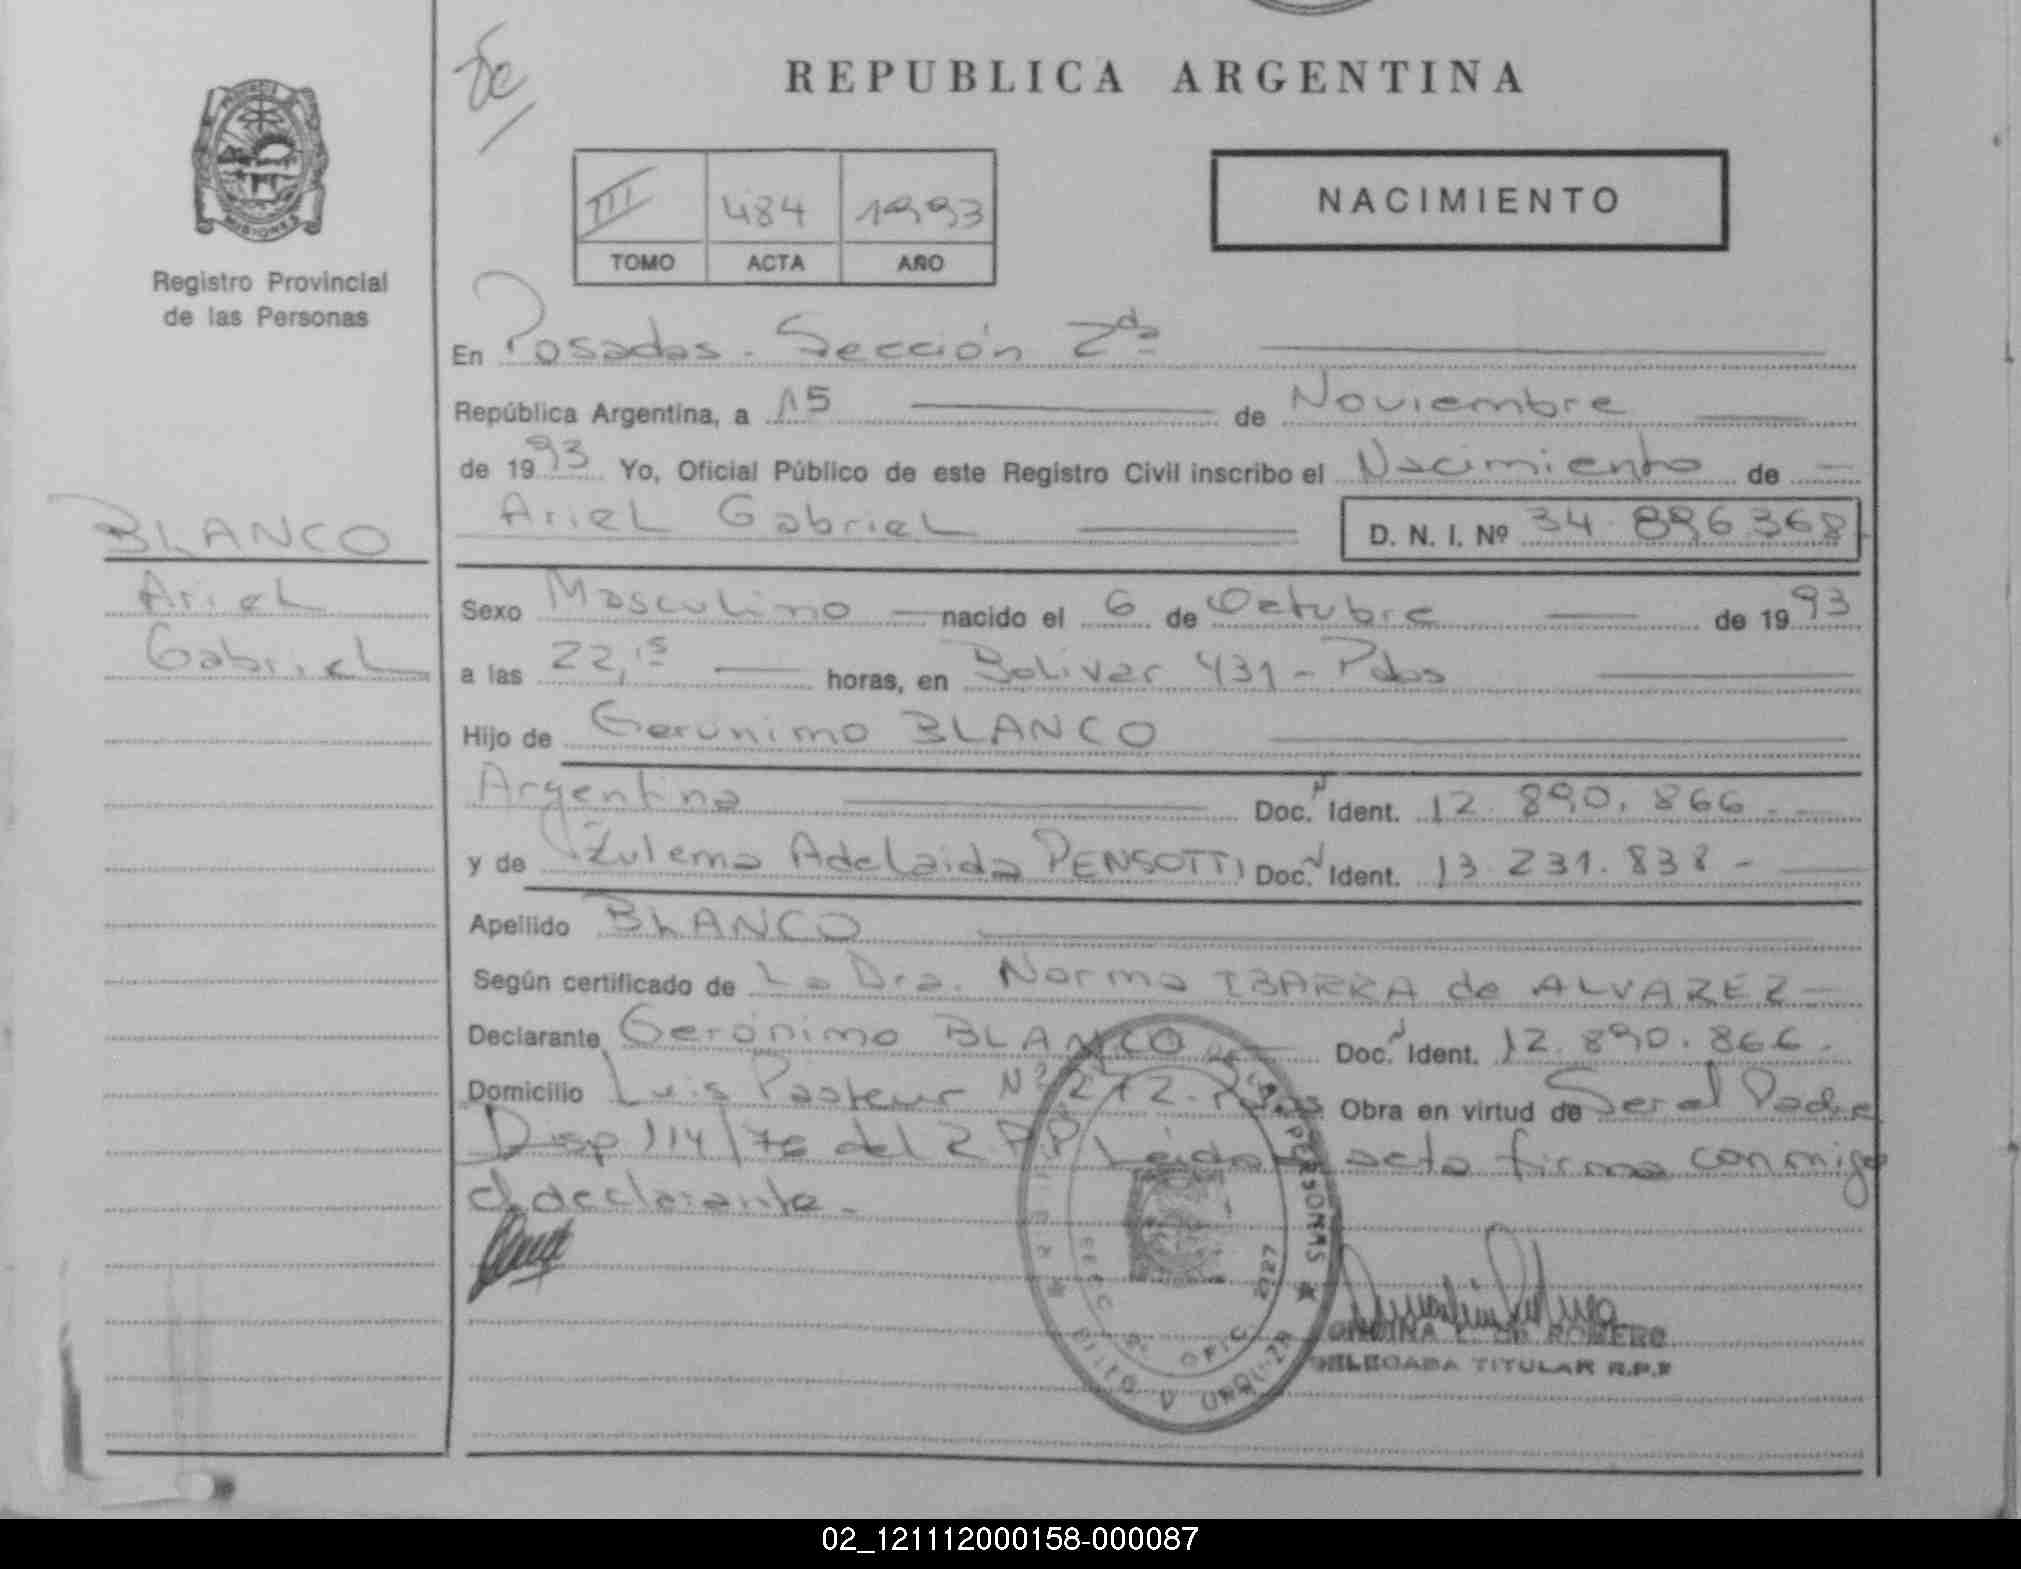 REPUBLICA ARGENTINA
PROVINCIA
MISIONES
Registro Provincial
de las Personas
III 484 1993
TOMO ACTA AÑO
NACIMIENTO
En Posadas - Sección 2da
República Argentina, a 15 de Noviembre
de 1993 Yo, Oficial Público de este Registro Civil inscribo el Nacimiento de
Ariel Gabriel D. N. I. Nº 34.896.368
BLANCO
Ariel
Gabriel
Sexo Masculino nacido el 6 de Octubre de 1993
a las 22,15 horas, en Bolivar 431 - Pdas
Hijo de Gerónimo BLANCO
Argentino Doc. Ident. 12.890.866.-
y de Zulema Adelaida PENSOTTI Doc. Ident. 13.231.838 -
Apellido BLANCO
Según certificado de La Dra. Norma IBARRA de ALVAREZ -
Declarante Gerónimo BLANCO Doc. Ident. 12.890.866.
Domicilio Luis Pasteur Nº 272. Pdas Obra en virtud de Ser el Padre
Disp 114/76 del R.P.P. Leída acta firma conmigo
el declarante.-
PERSONAS
SECC 2
OFIC 2027
VILLA URQUIZA
DE ROMERO
DELEGADA TITULAR R.P.P
02_121112000158-000087